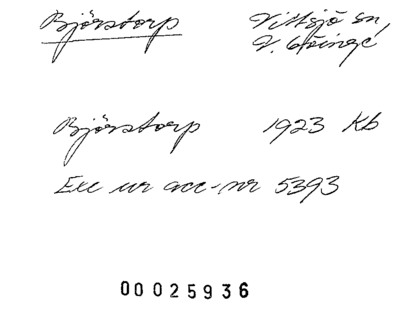 Björstorp Vittsjö sn,
V. Göinge
Björstorp 1923 Kb
Exc ur acc-nr 5393
00025936